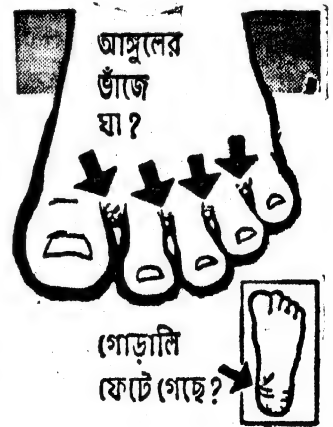 আঙ্গুলের
ভাঁজে
ঘা?
গোড়ালি
ফেটে গেছে?